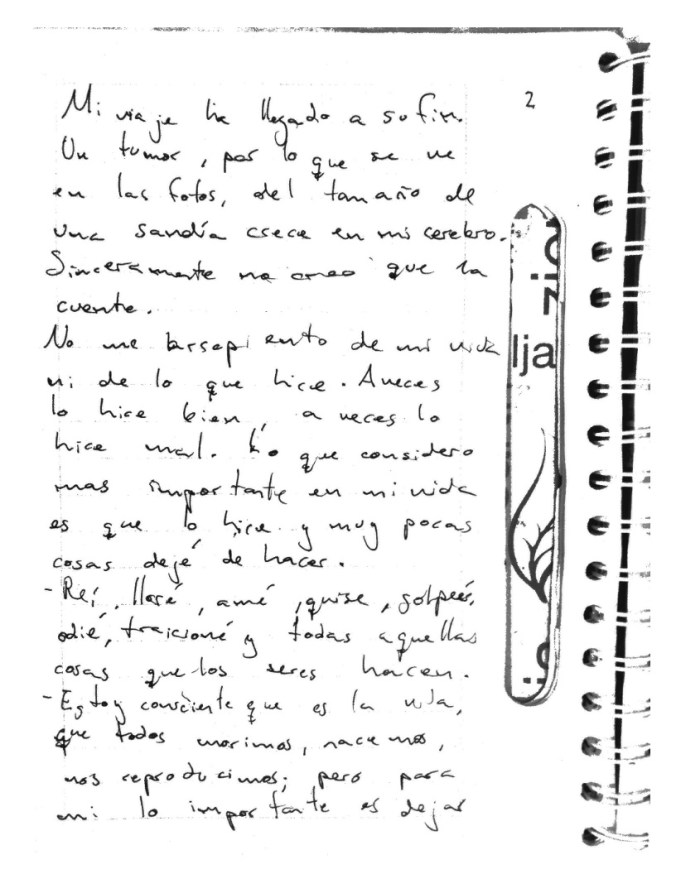 2
Mi viaje ha llegado a su fin.
Un tumor, por lo que se ve
en las fotos, del tamaño de
una sandía crece en mi cerebro.
Sinceramente no creo que la
cuente.
No me de mi vida
ni de lo que hice. Aveces
lo hice bien, a veces lo
hice mal. Lo que considero
mas importante en mi vida
es que lo hice y muy pocas
cosas dejé de hacer.
- Reí, lloré, amé, quise, golpeé,
odié, traicioné y todas aquellas
cosas que los seres hacen.
- Estoy consciente que es la vida,
que todos morimos, nacemos,
nos reproducimos; pero para
mi lo importante es dejar
zio
lja